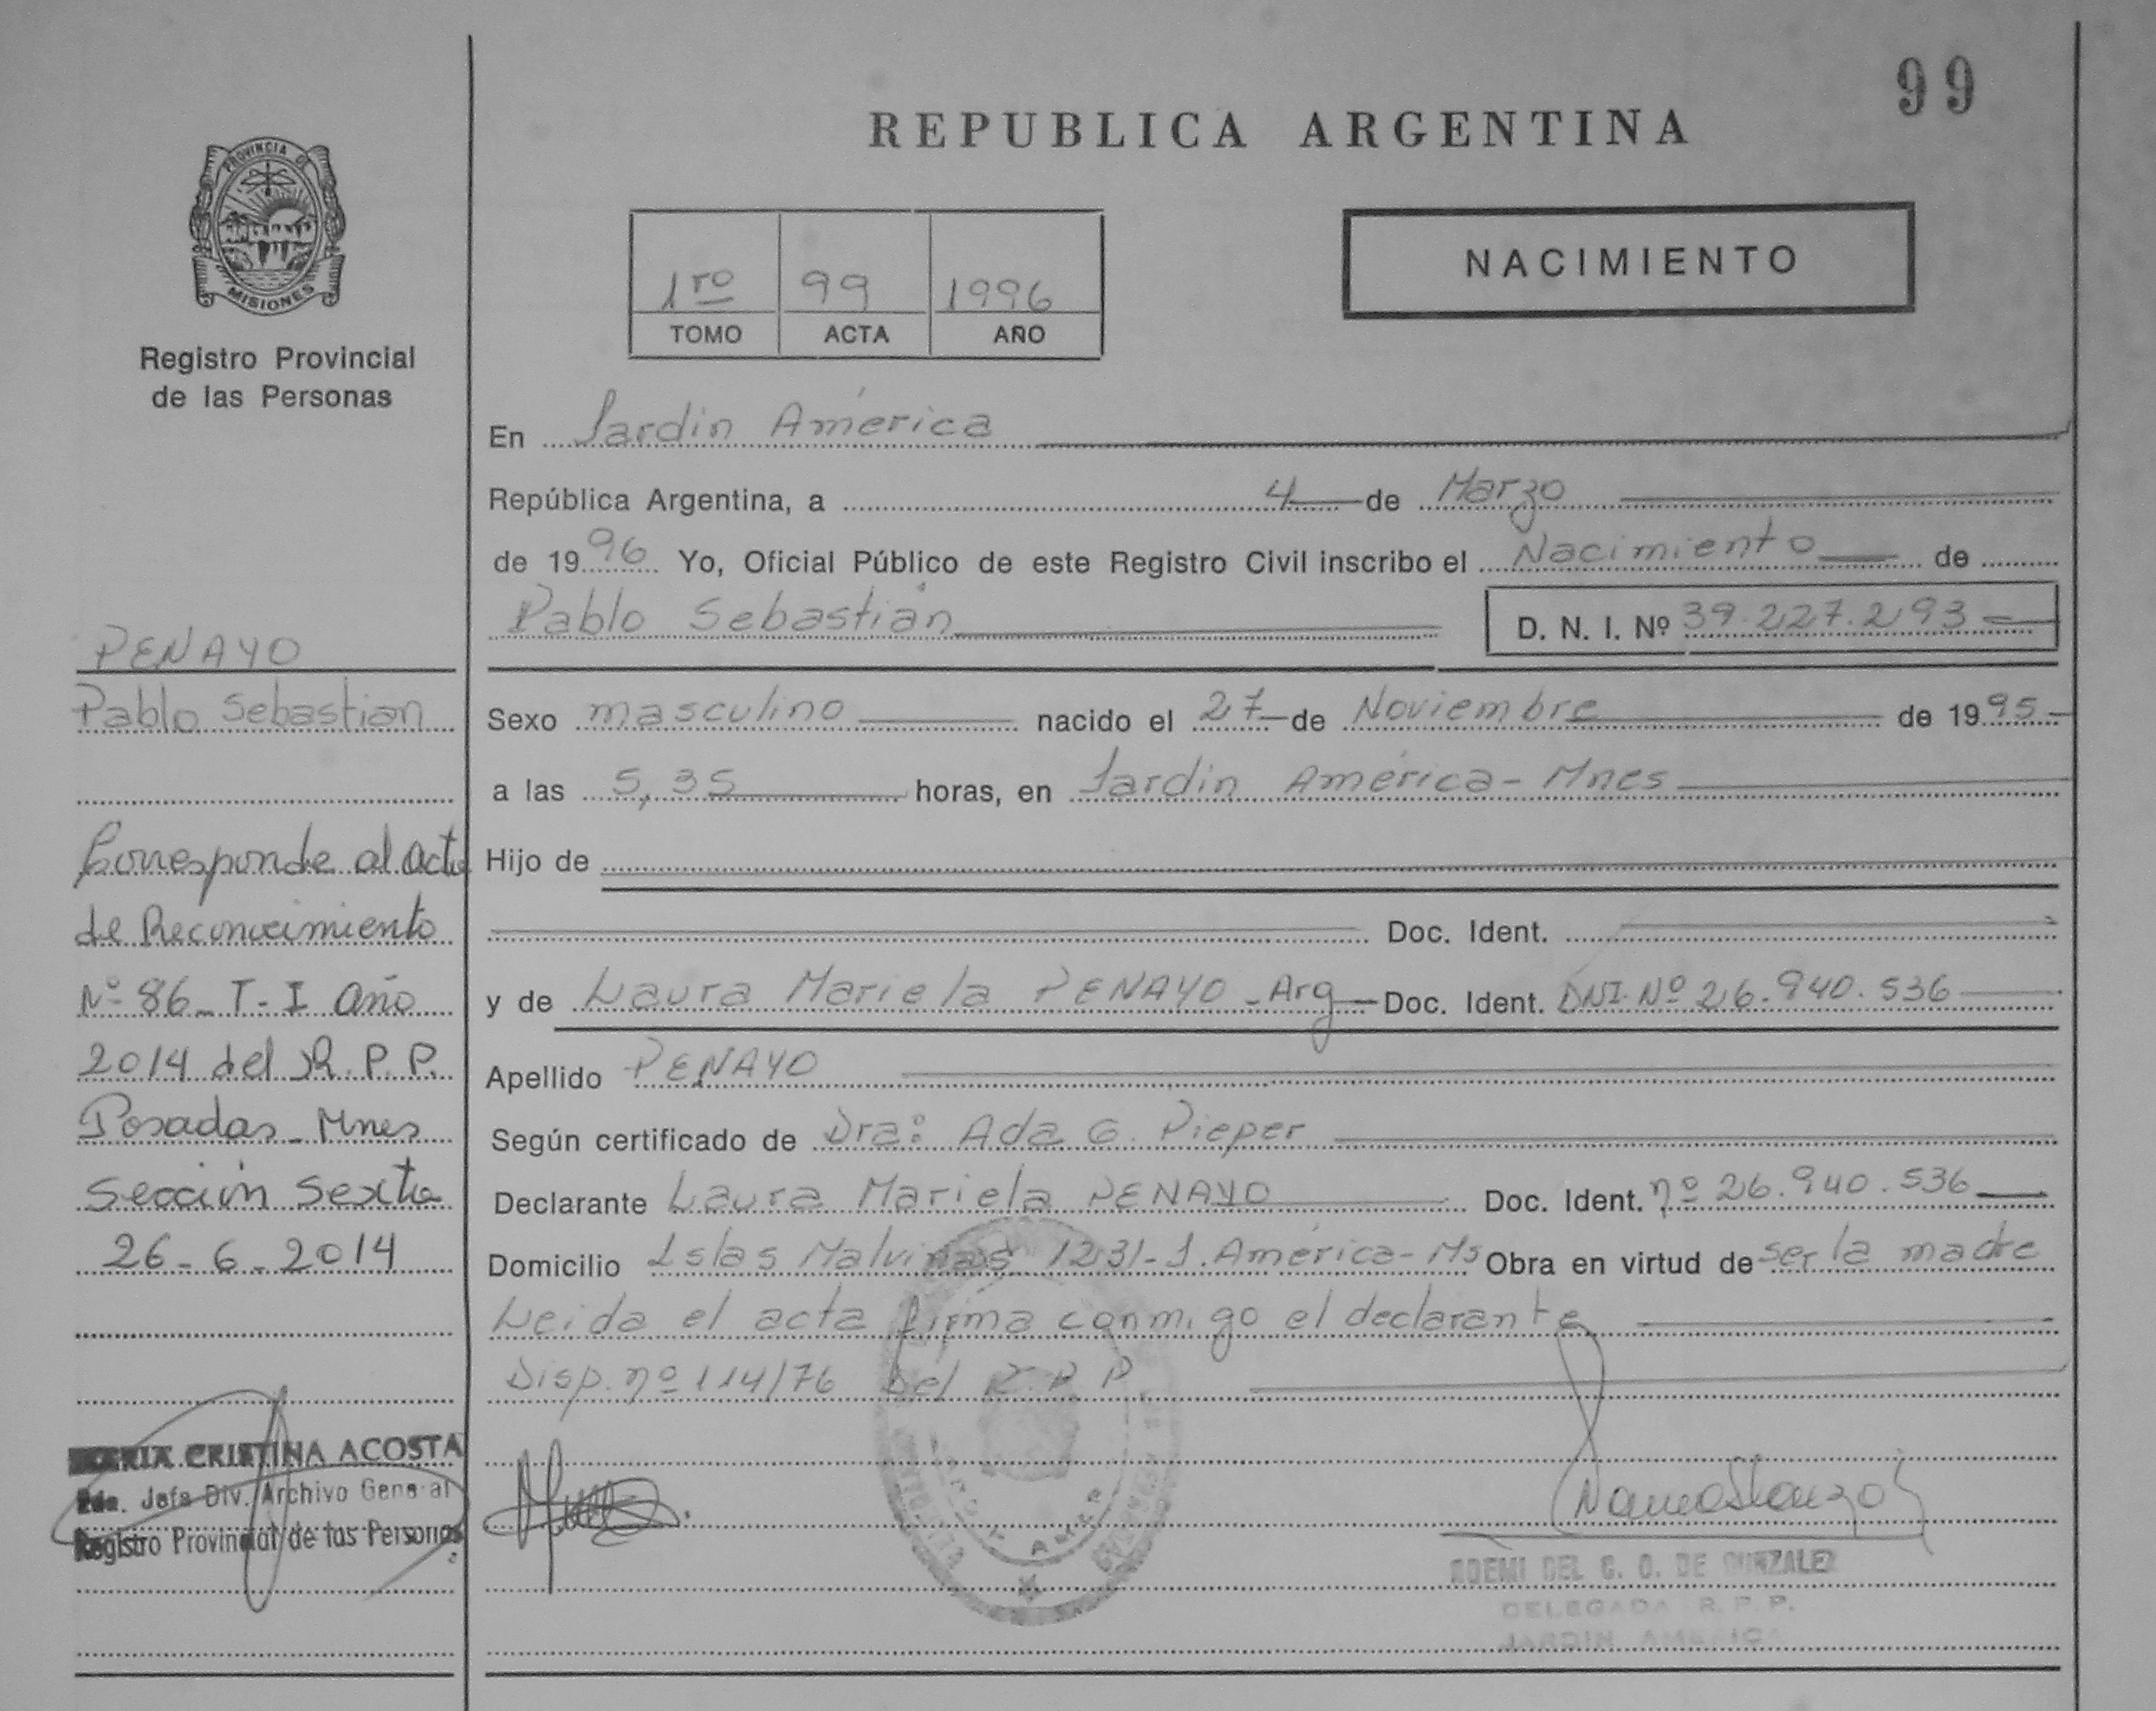 99
REPUBLICA ARGENTINA
PROVINCIA DE
MISIONES
Registro Provincial
de las Personas
NACIMIENTO
1ro 99 1996
TOMO ACTA AÑO
En Jardin América
República Argentina, a 4 de Marzo
de 1996 Yo, Oficial Público de este Registro Civil inscribo el Nacimiento de
Pablo Sebastián D. N. I. Nº 39.227.293
Sexo masculino nacido el 27 de Noviembre de 1995
a las 5,35 horas, en Jardin América - Mnes
Hijo de
Doc. Ident.
y de Laura Mariela PENAYO - Arg Doc. Ident. DNI. Nº 26.940.536
Apellido PENAYO
Según certificado de Dra: Ada G. Pieper
Declarante Laura Mariela PENAYO Doc. Ident. nº 26.940.536
Domicilio Islas Malvinas 1231- J. América - Ms Obra en virtud de ser la madre
Leida el acta firma conmigo el declarante
Disp. nº 114/76 del R.P.P.
PENAYO
Pablo Sebastian
Corresponde al acta
de Reconocimiento
Nº 86 - T - I año
2014 del R.P.P.
Posadas - Mnes
Sección Sexta
26 - 6 - 2014
MARIA CRISTINA ACOSTA
2da. Jefa Div. Archivo General
Registro Provincial de las Personas
NOEMI DEL C. O. DE GONZALEZ
DELEGADA R. P. P.
JARDIN AMERICA